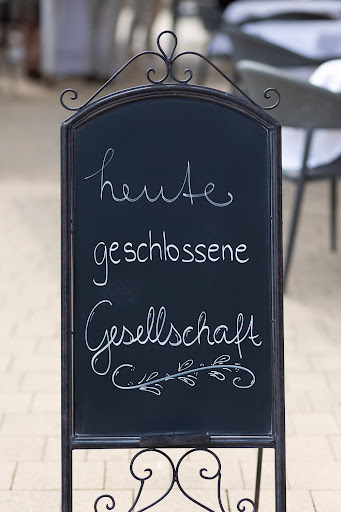 heute
geschlossene
Gesellschaft